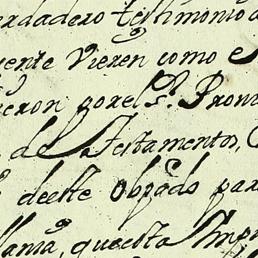 erdadero testimonio d
uente Vieren como e
ieron por el S.r Provi
de Testamentos, C
deeste Obp.do par
llania, queesta Impr